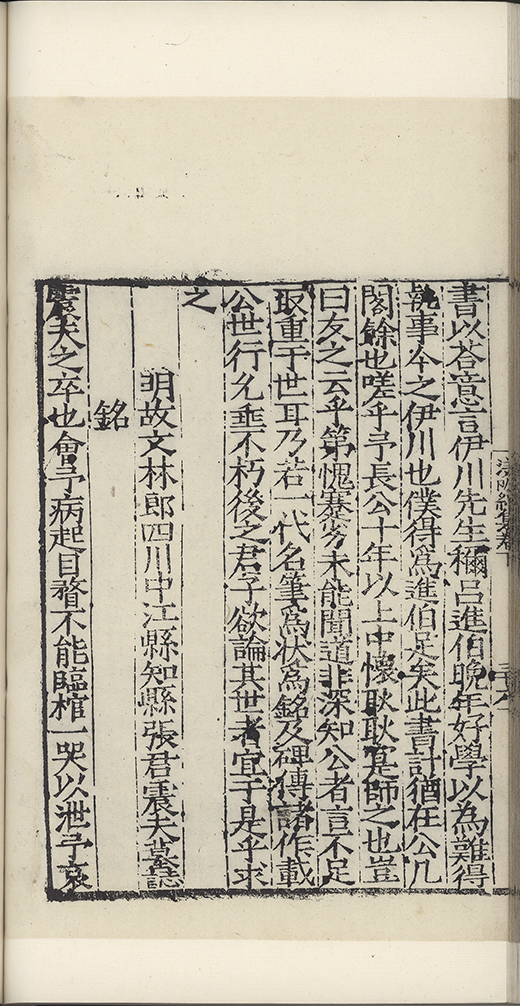 書以荅意言伊川先生稱呂進伯晚年好學以為難得
執事今之伊川也僕得為進伯足矣此書計猶在公几
閣餘也嗟乎予長公十年以上中懷耿耿寔師之也豈
曰友之云乎第愧蹇劣未能聞道非深知公者言不足
取重于世耳乃若一代名筆為狀為銘及碑傳諸作載
公世行允垂不朽後之君子欲論其世者宜于是乎求
之
明故文林郎四川中江縣知縣張君震夫墓誌
銘
震夫之卒也會予病起目瞀不能臨棺一哭以泄予哀